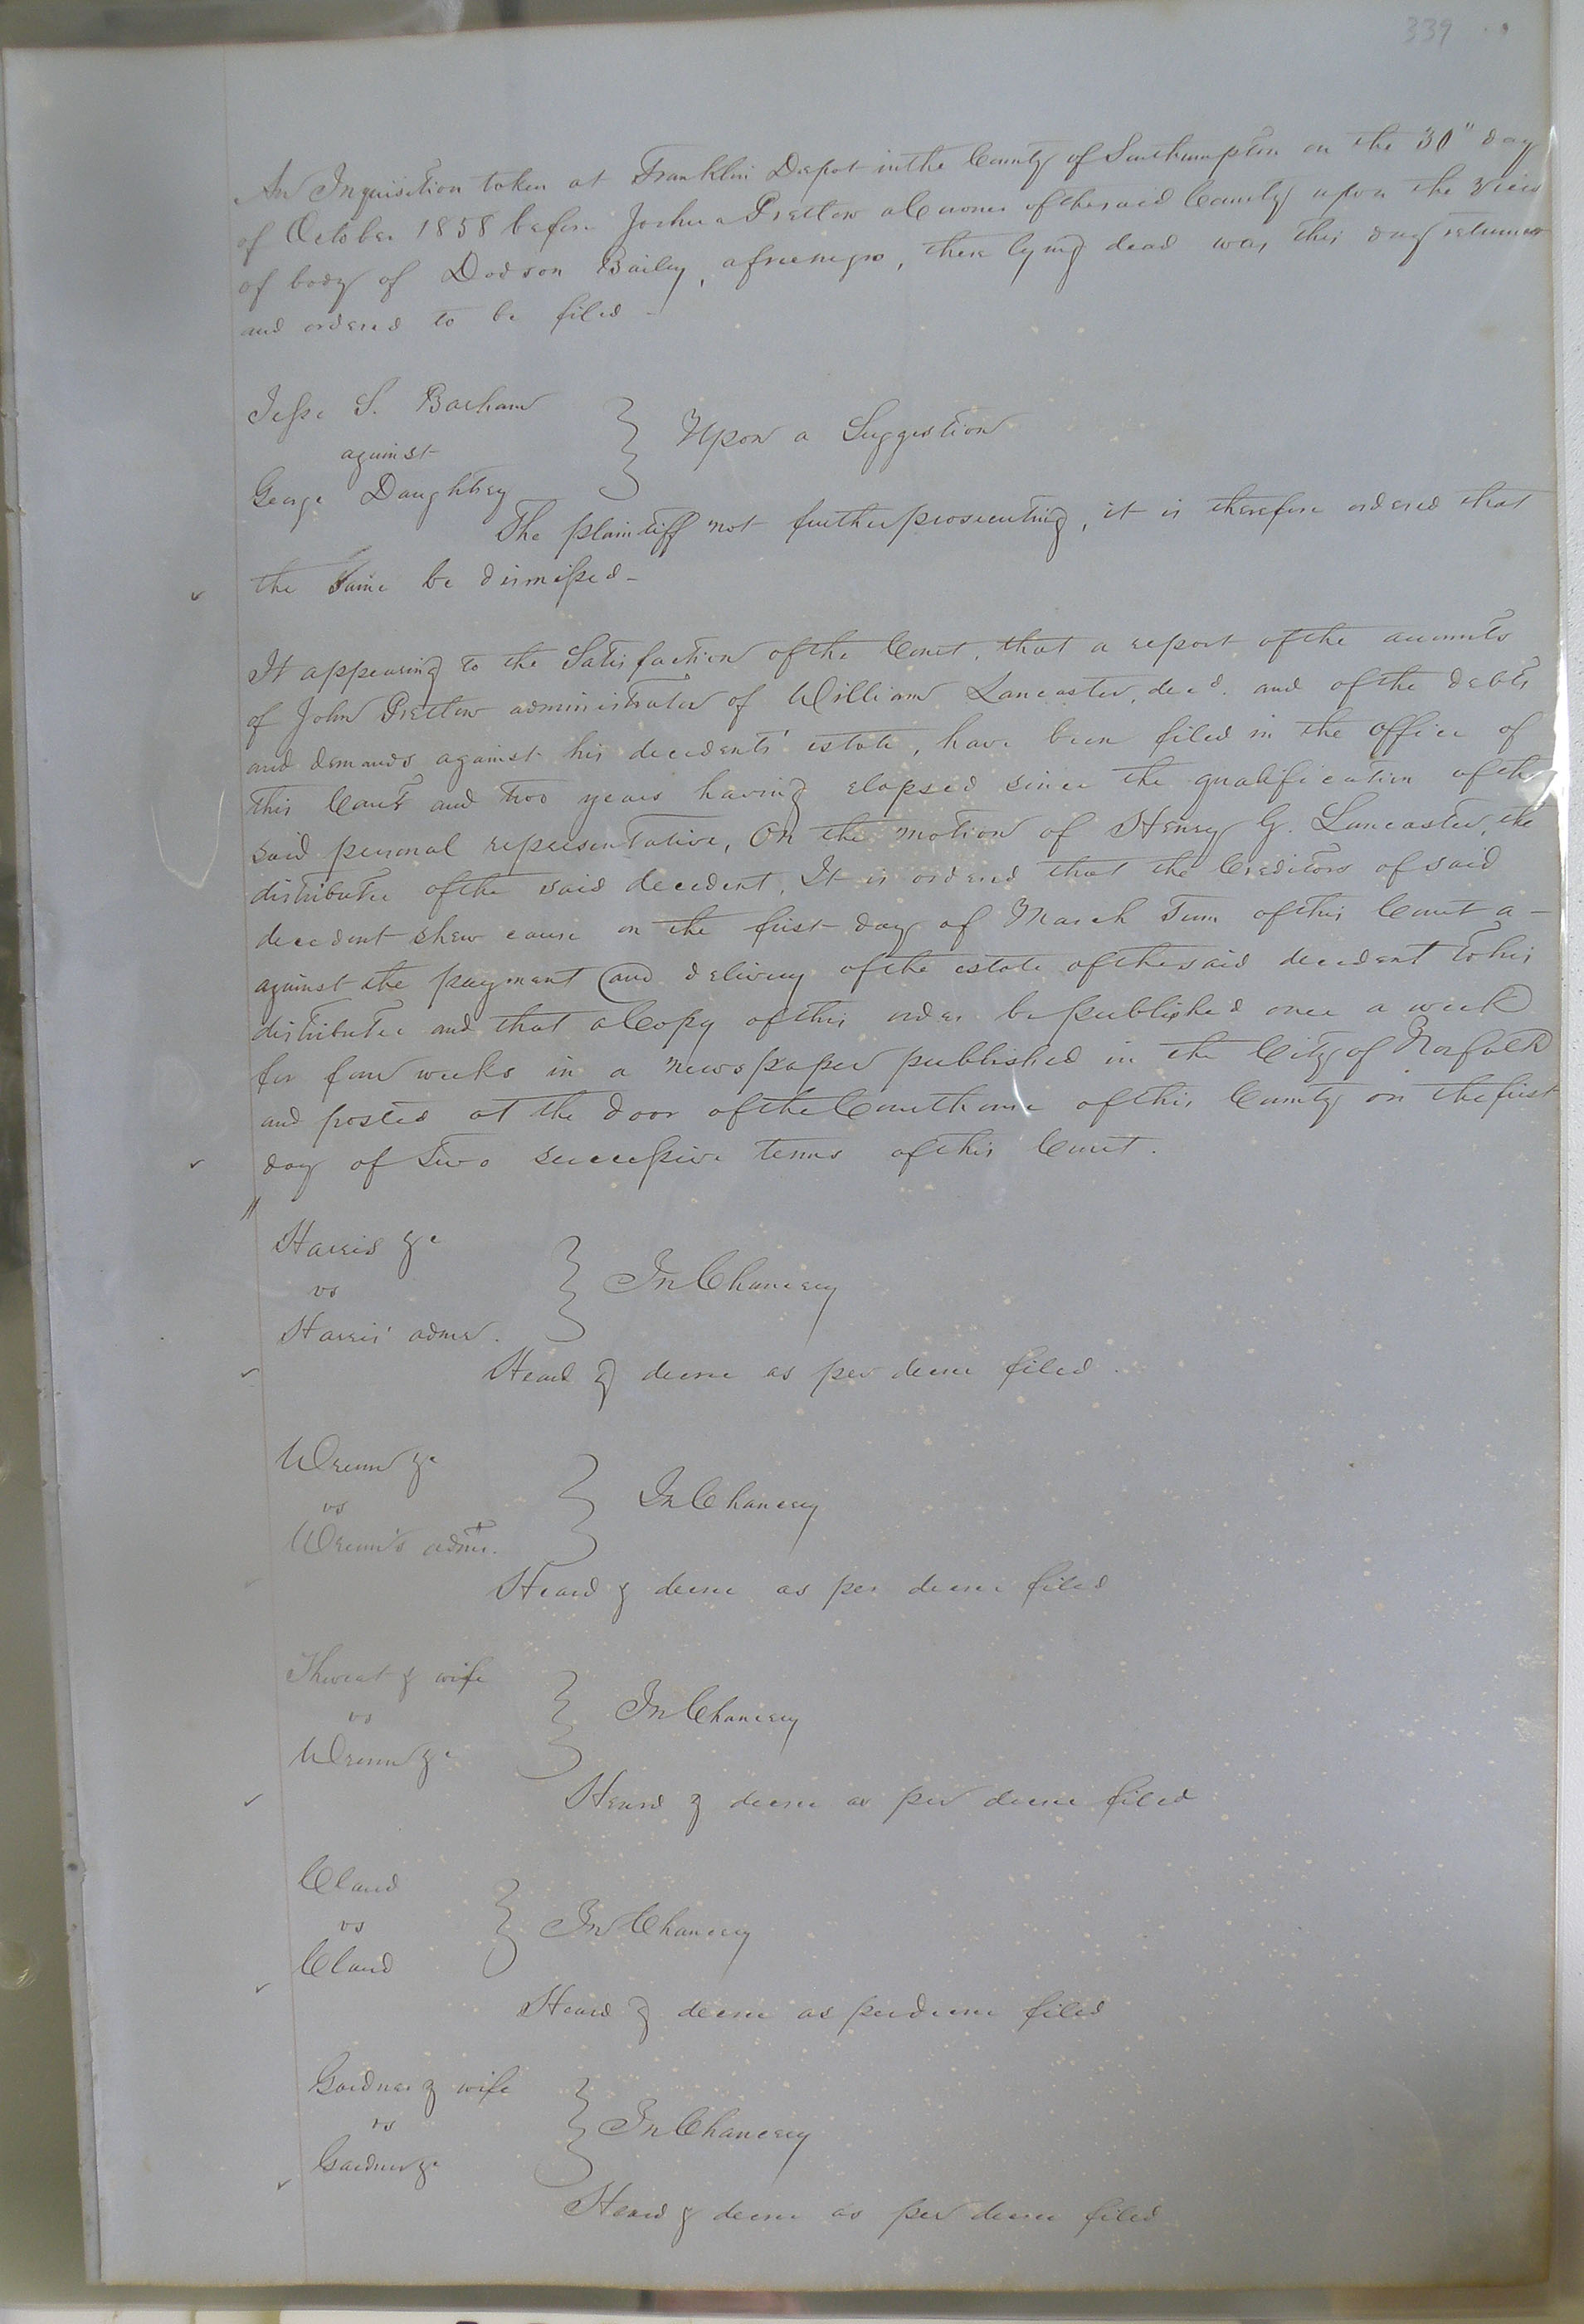 339
An Inquisition taken at Franklin Depot in the County of Southampton on the 30" day
of October 1858 before Joshua Pretlow a Coroner of the said County upon the view
of body of Dodson Bailey, a free negro, there lying dead was this day returned
and ordered to be filed -
Jesse S. Barham
against
George Daughtrey
} Upon a Suggestion
The plaintiff not further prosecuting, it is therefore ordered that
the same be dismissed -
It appearing to the Satisfaction of the Court, that a report of the accounts
of John Pretlow administrator of William Lancaster, decd. and of the debts
and demands against his decedents' estate, have been filed in the office of
this Court and two years having elapsed since the qualification of the
said personal representative, On the motion of Henry G. Lancaster, the
distributee of the said decedent, It is ordered that the Creditors of said
decedent shew cause on the first day of March Term of this Court a-
against the payment and delivery of the estate of the said decedent to his
distributee and that a Copy of this order be published once a week
for four weeks in a newspaper published in the City of Norfolk
and posted at the door of the Courthouse of this County on the first
day of two successive terms of this Court.
Harris &c
vs
Harris' admr.
} In Chancery
Heard & decree as per decree filed.
Wrenn &c
vs
Wrenn's admr.
} In Chancery
Heard & decree as per decree filed
Threat & wife
vs
Wrenn &c
} In Chancery
Heard & decree as per decree filed
Claud
vs
Claud
} In Chancery
Heard & decree as per decree filed
Gardner & wife
vs
Gardner &c
} In Chancery
Heard & decree as per decree filed